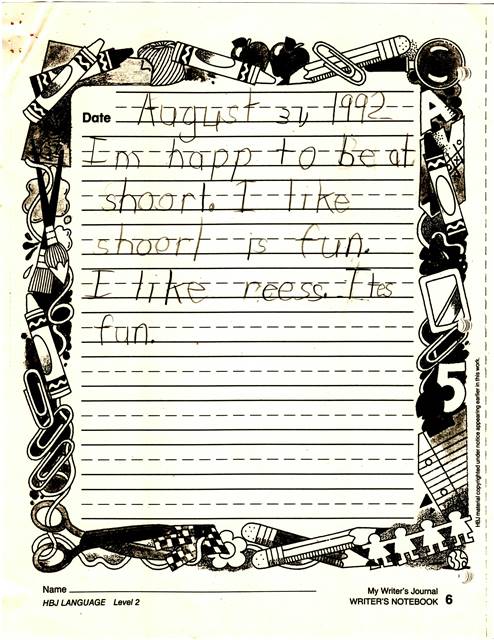 Date August 31, 1992
Im happ to be at
shoorl. I like
shoorl is fun.
I like reess. Ites
fun.
A
5
HBJ material copyrighted under notice appearing earlier in this work.
Name
My Writer's Journal
HBJ LANGUAGE Level 2 WRITER'S NOTEBOOK 6